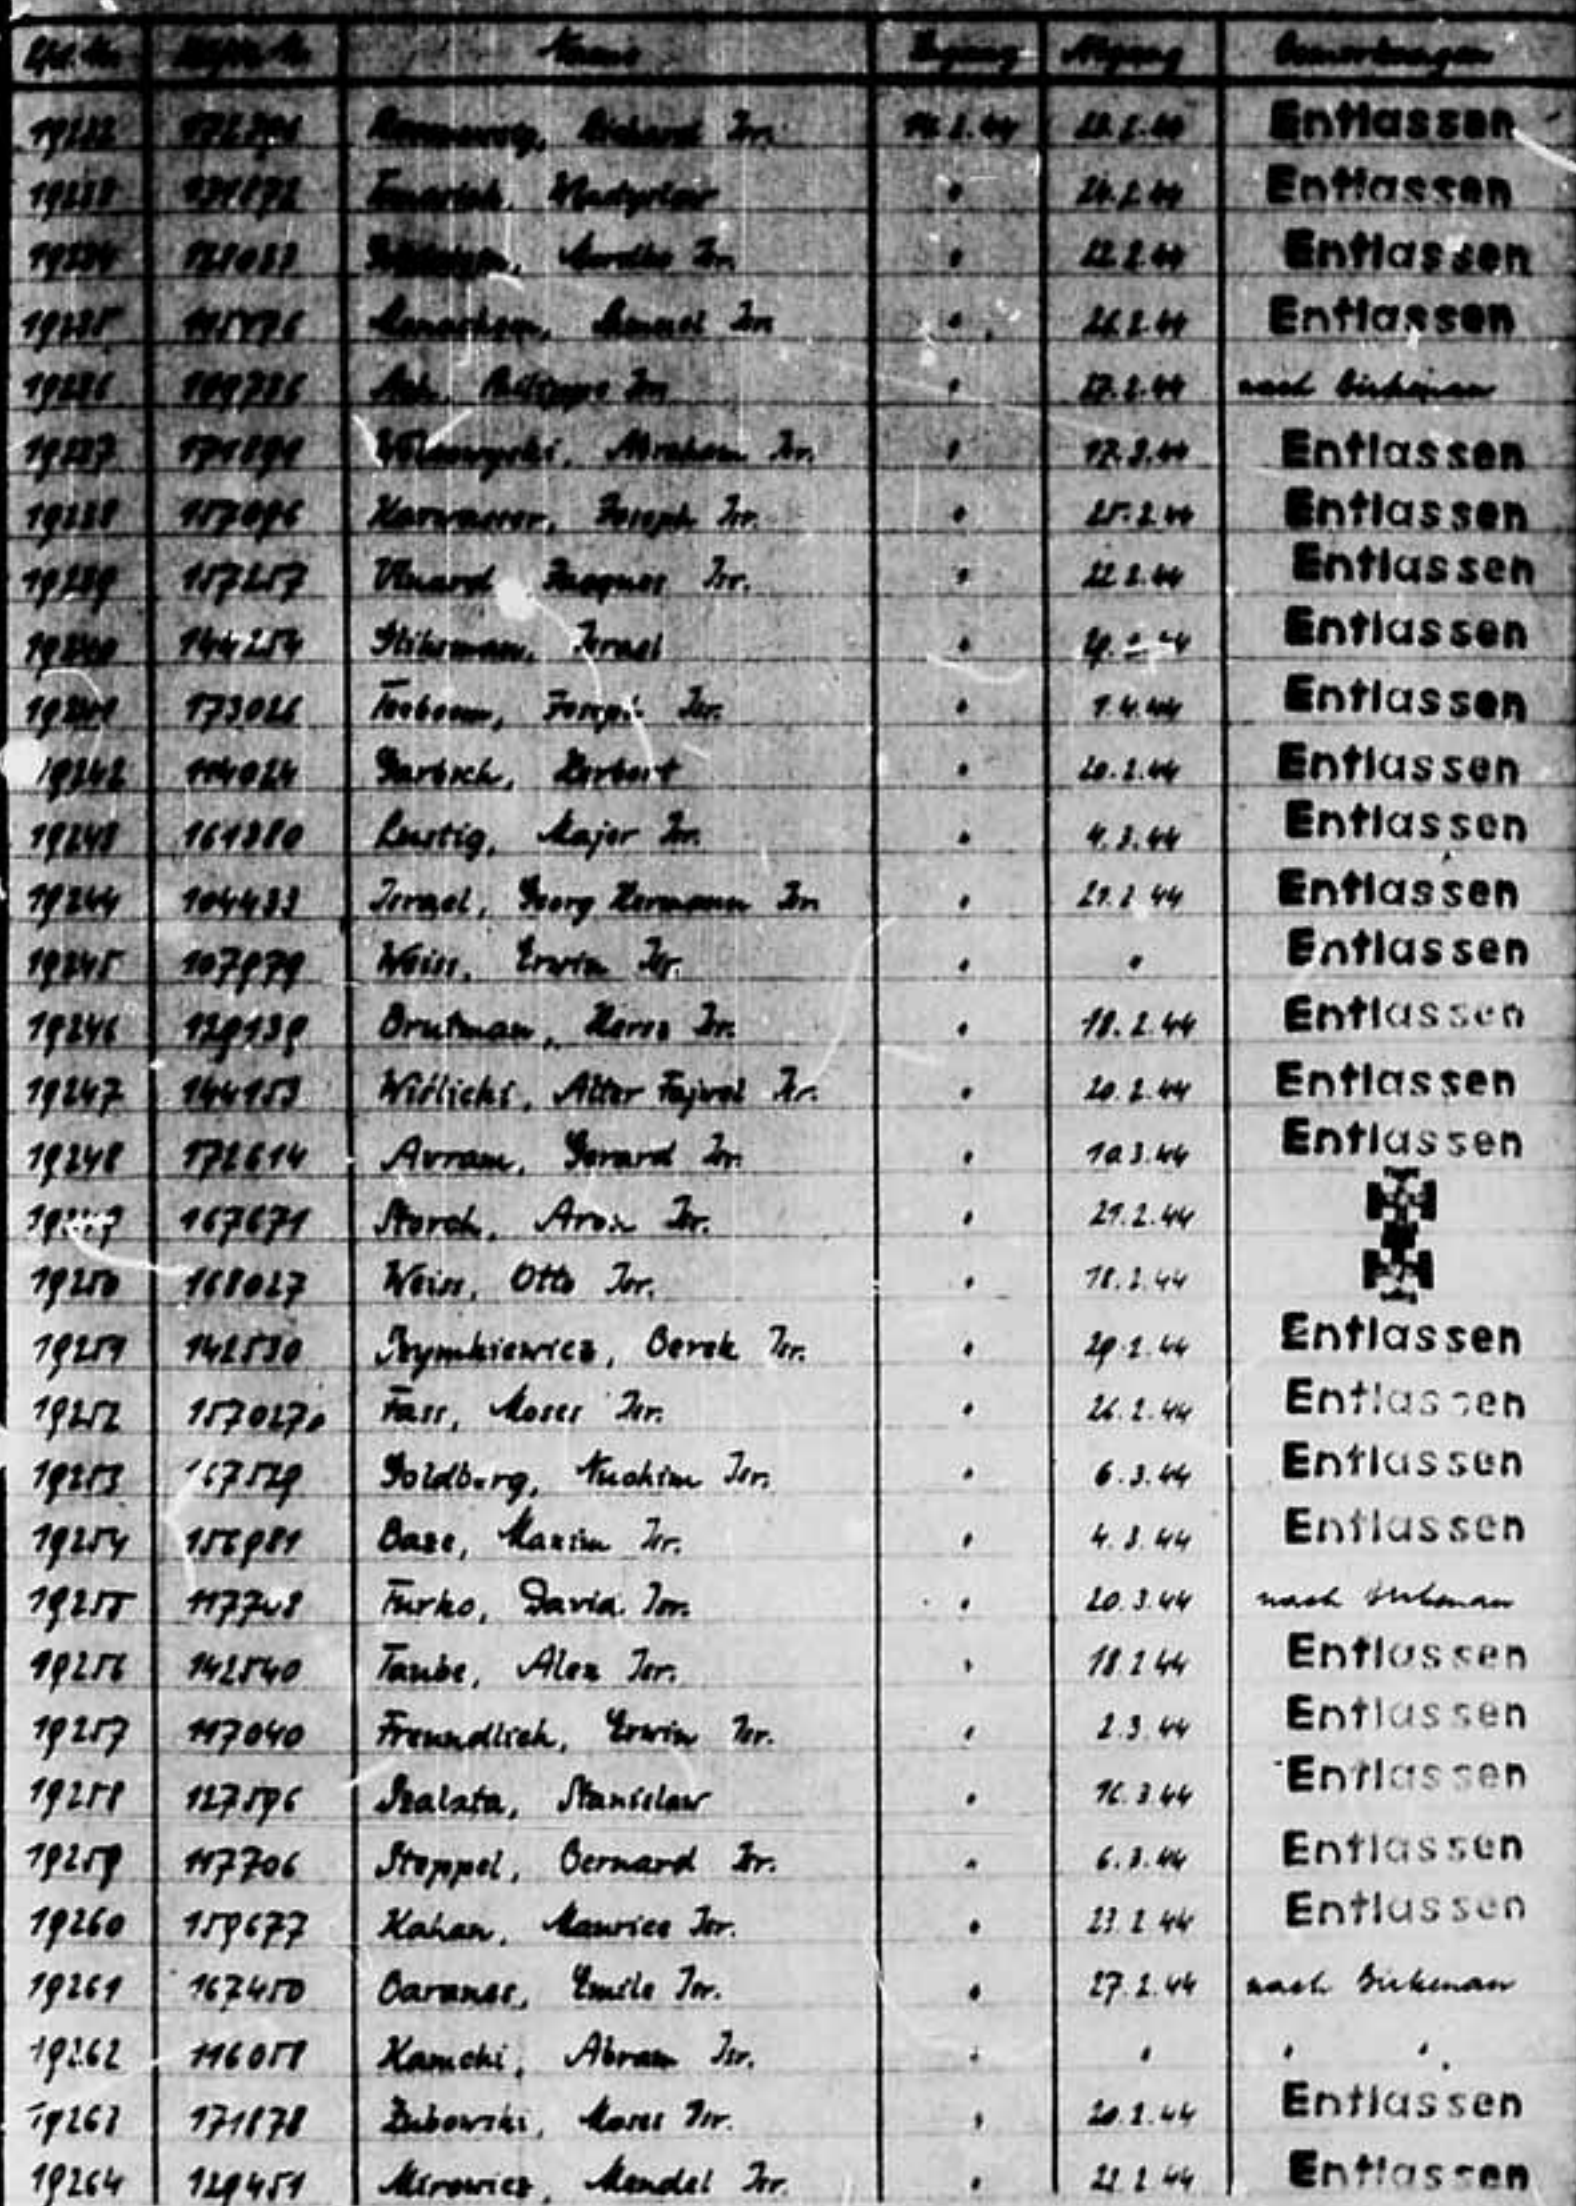 Lfd. Nr. Name Zugang Abgang Bemerkungen
19232 Richard Isr. 14.2.44 Entlassen
19233 131872 Wladyslaw " 24.2.44 Entlassen
19234 Isr. " 22.2.44 Entlassen
19235 Isr. " 26.2.44 Entlassen
19236 109736 Philippe Isr. " 27.2.44 nach Birkenau
19237 171891 Abraham Isr. " 17.3.44 Entlassen
19238 157096 Joseph Isr. " 25.2.44 Entlassen
19239 157257 Jacques Isr. " 22.2.44 Entlassen
19240 144254 Israel " Entlassen
19241 173026 Isr. " 1.4.44 Entlassen
19242 114024 Garbsch, Herbert " 20.2.44 Entlassen
19243 161380 Lustig, Majer Isr. " 4.3.44 Entlassen
19244 104433 Israel, Georg Hermann Isr. " 21.2.44 Entlassen
19245 107979 Weiss, Erwin Isr. " " Entlassen
19246 129139 Brutman, Hersz Isr. " 18.2.44 Entlassen
19247 144153 Widlicki, Alter Fajwel Isr. " 20.2.44 Entlassen
19248 172614 Avram, Gerard Isr. " 10.3.44 Entlassen
19249 167671 Storch, Aron Isr. " 21.2.44
19250 168027 Weiss, Otto Isr. " 18.2.44
19251 142530 Szymkiewicz, Berek Isr. " 29.2.44 Entlassen
19252 157027 Fass, Moses Isr. " 26.2.44 Entlassen
19253 167529 Goldberg, Nuchim Isr. " 6.3.44 Entlassen
19254 156981 Baze, Maxim Isr. " 4.3.44 Entlassen
19255 Furko, David Isr. " 20.3.44 nach Birkenau
19256 142540 Taube, Alex Isr. " 18.2.44 Entlassen
19257 117040 Freundlich, Erwin Isr. " 2.3.44 Entlassen
19258 127596 Szalata, Stanislaw " 16.3.44 Entlassen
19259 117706 Stoppel, Bernard Isr. " 6.3.44 Entlassen
19260 159677 Kahan, Maurice Isr. " 23.2.44 Entlassen
19261 167450 Baranes, Emile Isr. " 27.2.44 nach Birkenau
19262 116058 Kamchi, Abram Isr. " " " "
19263 171878 Zubowski, Moses Isr. " 20.2.44 Entlassen
19264 129451 Mirowicz, Mendel Isr. " 22.2.44 Entlassen